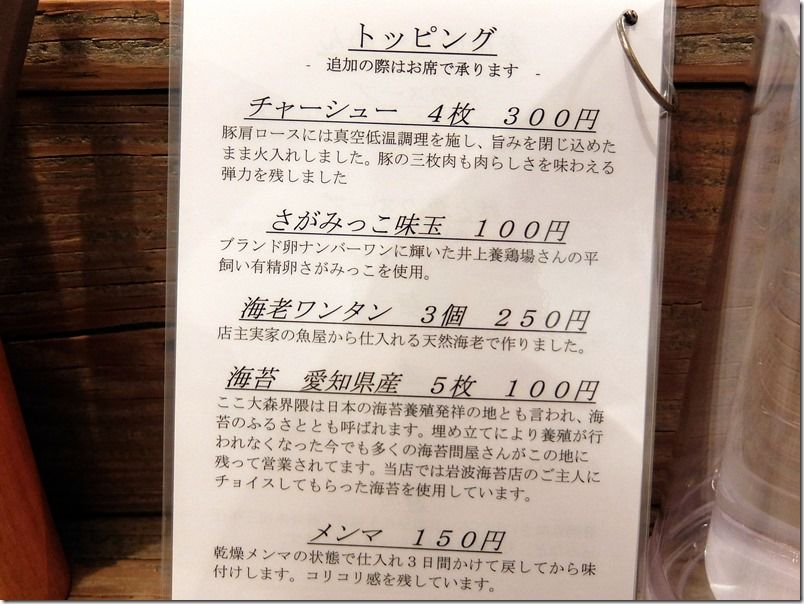 トッピング
- 追加の際はお席で承ります -
チャーシュー 4枚 300円
豚肩ロースには真空低温調理を施し、旨みを閉じ込めた
まま火入れしました。豚の三枚肉も肉らしさを味わえる
弾力を残しました
さがみっこ味玉 100円
ブランド卵ナンバーワンに輝いた井上養鶏場さんの平
飼い有精卵さがみっこを使用。
海老ワンタン 3個 250円
店主実家の魚屋から仕入れる天然海老で作りました。
海苔 愛知県産 5枚 100円
ここ大森界隈は日本の海苔養殖発祥の地とも言われ、海
苔のふるさととも呼ばれます。埋め立てにより養殖が行
われなくなった今でも多くの海苔問屋さんがこの地に
残って営業されてます。当店では岩波海苔店のご主人に
チョイスしてもらった海苔を使用しています。
メンマ 150円
乾燥メンマの状態で仕入れ3日間かけて戻してから味
付けします。コリコリ感を残しています。